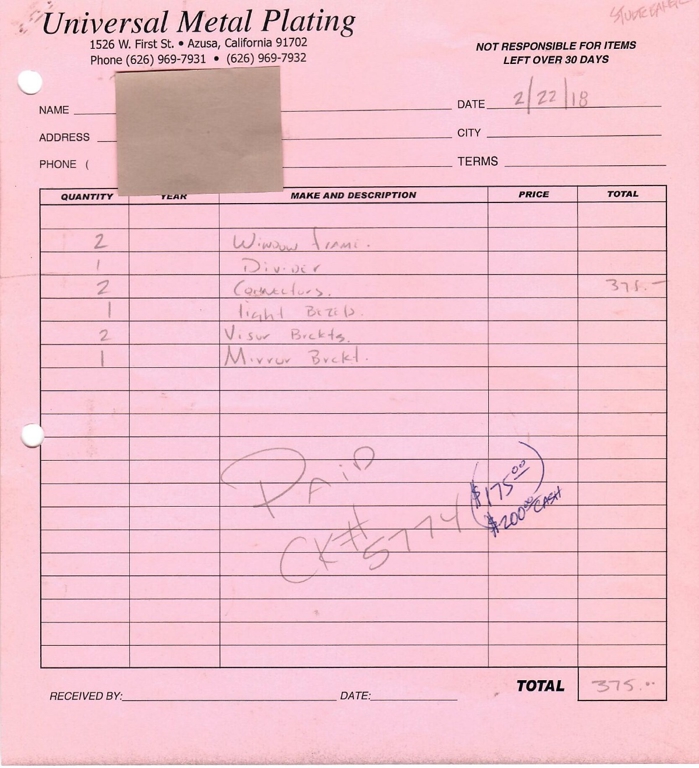 STUDEBAKER
Universal Metal Plating
1526 W. First St. • Azusa, California 91702
Phone (626) 969-7931 • (626) 969-7932
NOT RESPONSIBLE FOR ITEMS
LEFT OVER 30 DAYS
NAME DATE 2/22/18
ADDRESS CITY
PHONE ( TERMS
QUANTITY YEAR MAKE AND DESCRIPTION PRICE TOTAL
2 Window frame.
1 Divider
2 Connectors. 375.-
1 light Bezel
2 Visor Brckts.
1 Mirror Brckt.
PAID
CK# 5774
$175.00
$200.00 CASH
RECEIVED BY: DATE: TOTAL 375.00